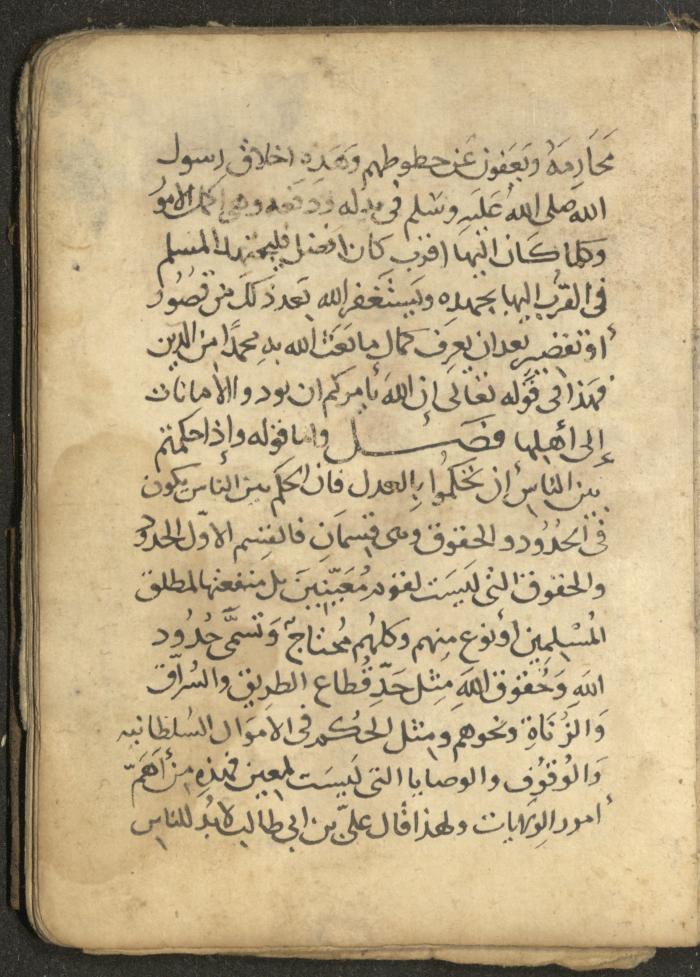 مَحَارِمَهُ ويَعفون عَن حظوظهم وهَذِهِ اخلاق رسول
الله صلى اللهُ عَلَيهِ وسَلم في بذله ودفعه وهي اكمل الامُورُ
وكلما كَان اليها اقرب كان افضل فليجتهد المسلم
في القُرْب اليها بجهده ويَستَغفر الله بَعدَ ذَلكَ من قصُور
أو تقصير بعد ان يَعرِفَ كمال ما بَعَث اللهُ بهِ محمدًا من الدّين
فهذا في قَولِه تعَالى إن اللهَ يأمركم ان تودوا الأمانات
إلى أهلها فصَـــــل واما قوله وإذا حكمتم
بين الناس أن تحْكمُوا بالعدل فان الحكم بين الناس يكون
في الحُدُود والحقوق وهي قِسمَانِ فالقِسم الاوّل الحدود
والحقوق التي لَيسَت لقوم مُعَيّنِينَ بل منفعتها لمطلق
المُسْلِمين أو نوع مِنهم وكلهُم مُحتاجٌ وَتسمَّى حُدُود
اللهِ وَحُقوق اللهِ مِثل حَدّ قُطاع الطريق والسُرّاق
وَالزُناةِ ونحوهم ومثل الحُكم في الأموَال السُلطانيه
وَالوُقوُف والوصايا التي لَيسَت لمعين فهذهِ من أهَمّ
أمور الوِلايات ولهذا قال عليّ بن ابي طالب لابُدّ للناس